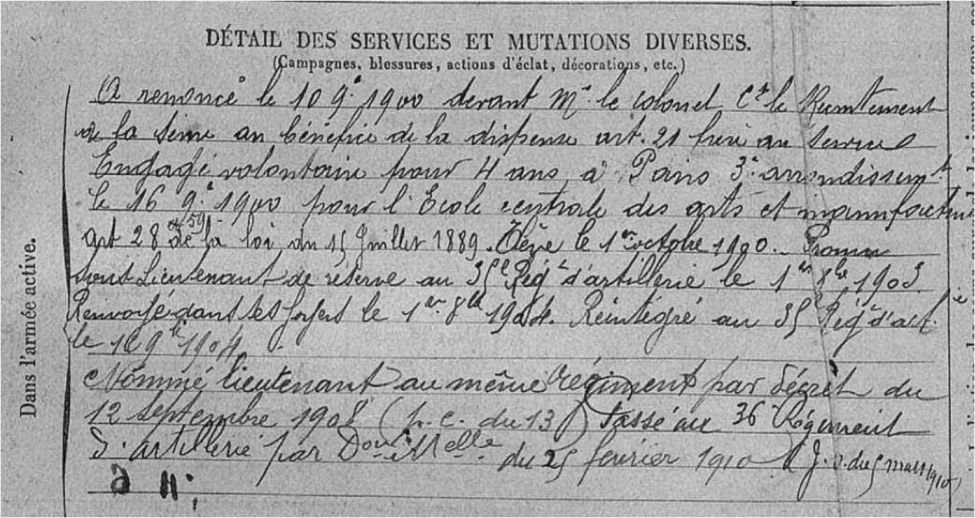 DÉTAIL DES SERVICES ET MUTATIONS DIVERSES.
(Campagnes, blessures, actions d'éclat, décorations, etc.)
A renoncé le 10 9e 1900 devant Mr le Colonel Ct le Recrutement
de la Seine au bénéfice de la dispense art. 21 frère au service
Engagé volontaire pour 4 ans, à Paris 3e arrondissemt
le 16 9e 1900 pour l'Ecole centrale des arts et manufactures
art 28 et 59 de la loi du 15 Juillet 1889. Elève le 1er octobre 1900. Promu
sous Lieutenant de réserve au 35e Régt d'artillerie le 1er 8bre 1903
Renvoyé dans ses foyers le 1er 8bre 1904. Réintégré au 35e Régt d'art.
le 9 1904
Nommé lieutenant au même régiment par décret du
12 septembre 1908 (J.O. du 13) Passé au 36e Régiment
d'artillerie par Don Mielle du 25 février 1910 (J.O. du 5 mars 1910)
Dans l'armée active.